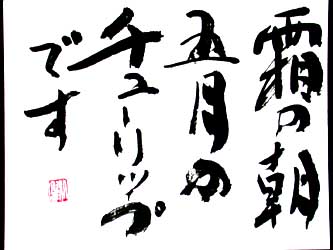 霜の朝
五月の
チューリップ
です